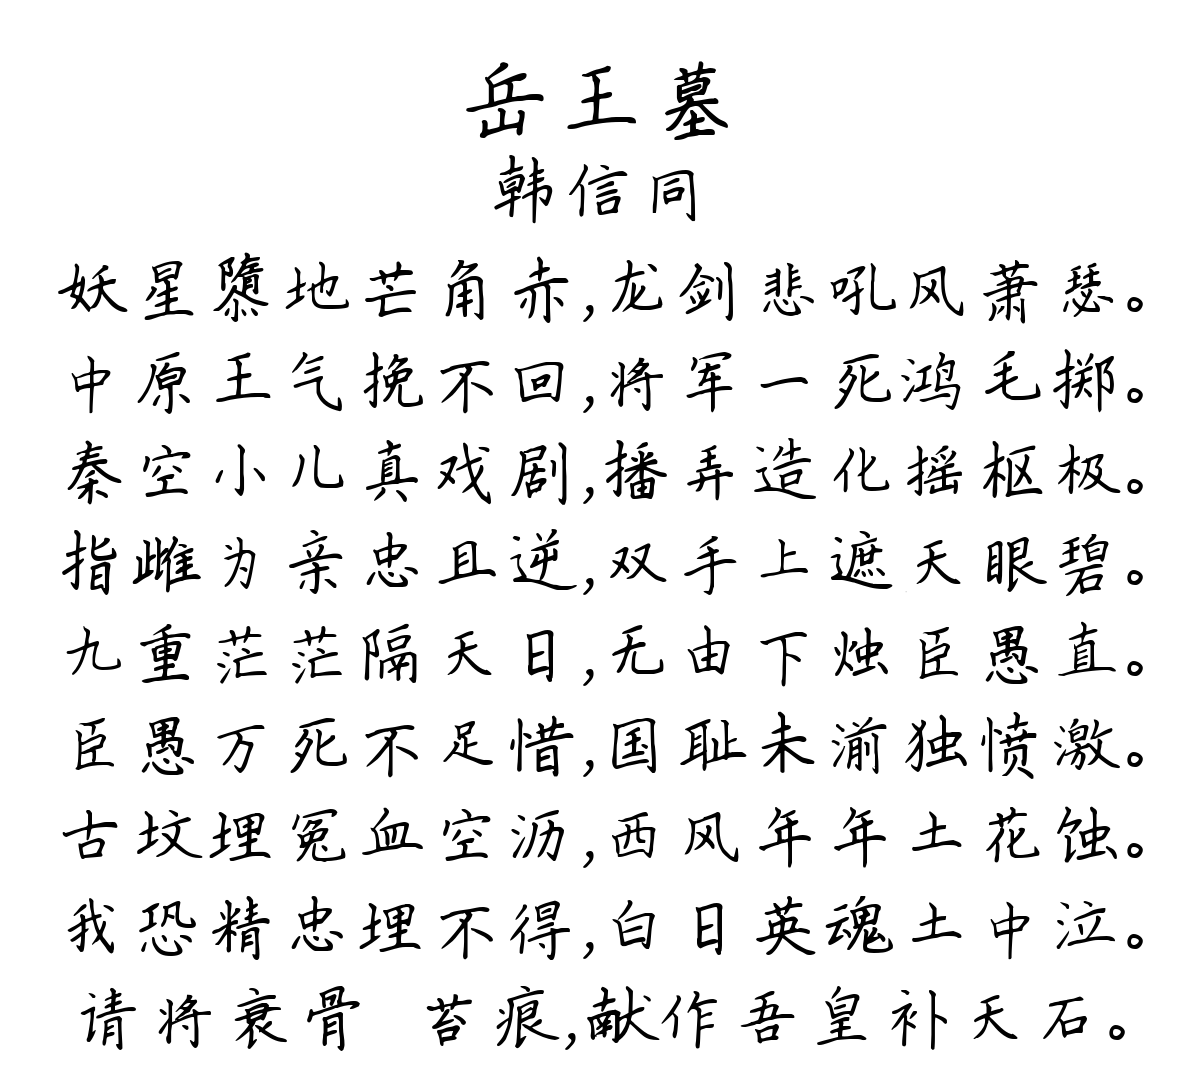 岳王墓
韩信同
妖星隳地芒角赤,龙剑悲吼风萧瑟。
中原王气挽不回,将军一死鸿毛掷。
秦空小儿真戏剧,播弄造化摇枢极。
指雌为亲忠且逆,双手上遮天眼碧。
九重茫茫隔天日,无由下烛臣愚直。
臣愚万死不足惜,国耻未湔独愤激。
古坟埋冤血空沥,西风年年土花蚀。
我恐精忠埋不得,白日英魂土中泣。
请将衰骨 苔痕,献作吾皇补天石。